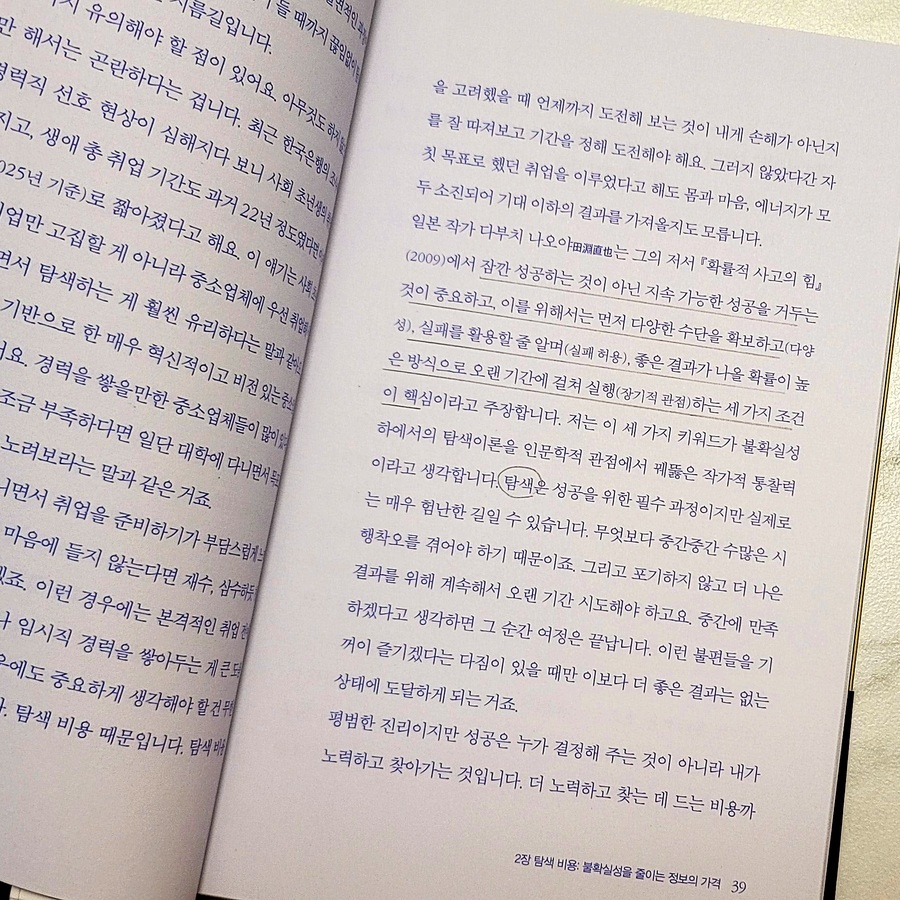 지름길입니다.
유의해야 할 점이 있어요. 아무것도
만 해서는 곤란하다는 겁니다. 최근 한국은행의
경력직 선호 현상이 심해지다 보니 사회 초년생의
지고, 생애 총 취업 기간도 과거 22년 정도였다면
025년 기준)로 짧아졌다고 해요. 이 얘기는 사회
업만 고집할 게 아니라 중소업체에 우선 취업해
면서 탐색하는 게 훨씬 유리하다는 말과 같아요.
기반으로 한 매우 혁신적이고 비전 있는
요. 경력을 쌓을만한 중소업체들이 많이
조금 부족하다면 일단 대학에 다니면서
노려보라는 말과 같은 거죠.
니면서 취업을 준비하기가 부담스럽게
마음에 들지 않는다면 재수, 삼수하듯
겠죠. 이런 경우에는 본격적인 취업
나 임시직 경력을 쌓아두는 게 큰
우에도 중요하게 생각해야 할 건
탐색 비용 때문입니다. 탐색
을 고려했을 때 언제까지 도전해 보는 것이 내게 손해가 아닌지
를 잘 따져보고 기간을 정해 도전해야 해요. 그러지 않았다간 자
칫 목표로 했던 취업을 이루었다고 해도 몸과 마음, 에너지가 모
두 소진되어 기대 이하의 결과를 가져올지도 모릅니다.
일본 작가 다부치 나오야田淵直也는 그의 저서 『확률적 사고의 힘』
(2009)에서 잠깐 성공하는 것이 아닌 지속 가능한 성공을 거두는
것이 중요하고, 이를 위해서는 먼저 다양한 수단을 확보하고(다양
성), 실패를 활용할 줄 알며(실패 허용), 좋은 결과가 나올 확률이 높
은 방식으로 오랜 기간에 걸쳐 실행(장기적 관점)하는 세 가지 조건
이 핵심이라고 주장합니다. 저는 이 세 가지 키워드가 불확실성
하에서의 탐색이론을 인문학적 관점에서 꿰뚫은 작가적 통찰력
이라고 생각합니다. 탐색은 성공을 위한 필수 과정이지만 실제로
는 매우 험난한 길일 수 있습니다. 무엇보다 중간중간 수많은 시
행착오를 겪어야 하기 때문이죠. 그리고 포기하지 않고 더 나은
결과를 위해 계속해서 오랜 기간 시도해야 하고요. 중간에 만족
하겠다고 생각하면 그 순간 여정은 끝납니다. 이런 불편들을 기
꺼이 즐기겠다는 다짐이 있을 때만 이보다 더 좋은 결과는 없는
상태에 도달하게 되는 거죠.
평범한 진리이지만 성공은 누가 결정해 주는 것이 아니라 내가
노력하고 찾아가는 것입니다. 더 노력하고 찾는 데 드는 비용까
2장 탐색 비용: 불확실성을 줄이는 정보의 가격 39